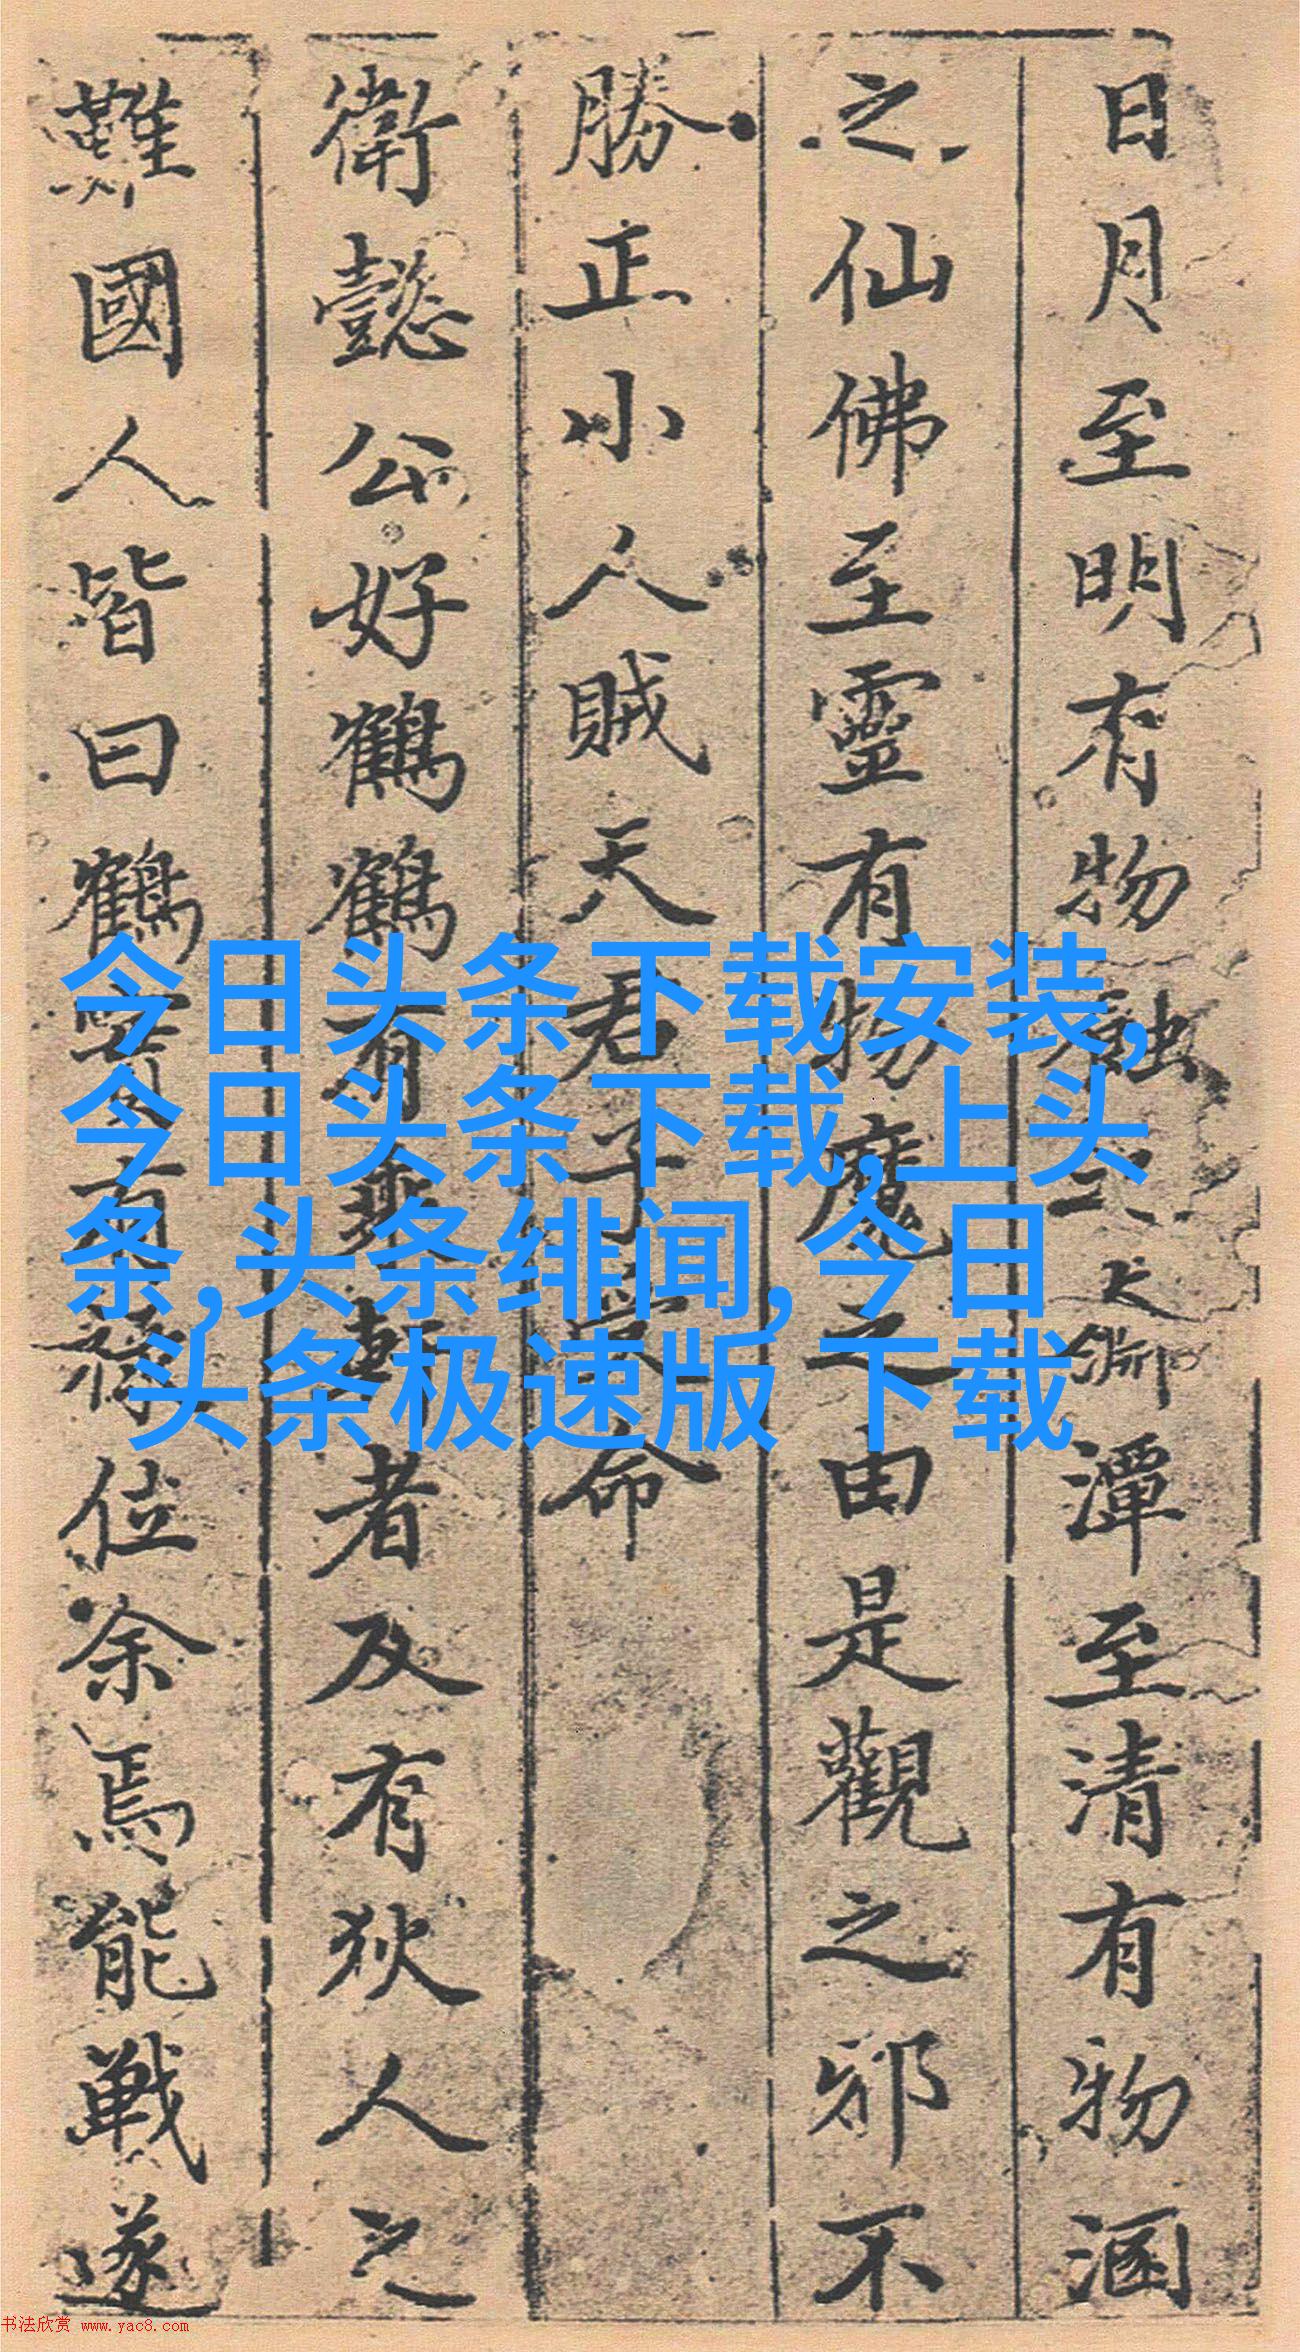 日月至明有物蝕之大淵潭至清有物涵
之仙佛至靈有物魔之由是觀之邪不
勝正小人賊天君子命
衛懿公好鶴鶴有乘軒者及有狄人之
難國人皆曰鶴實有祿位余焉能戰遂
今日头条下载安装,
今日头条下载,上头
条,头条绯闻,今日
头条极速版 下载
书法欣赏 www.yac8.com